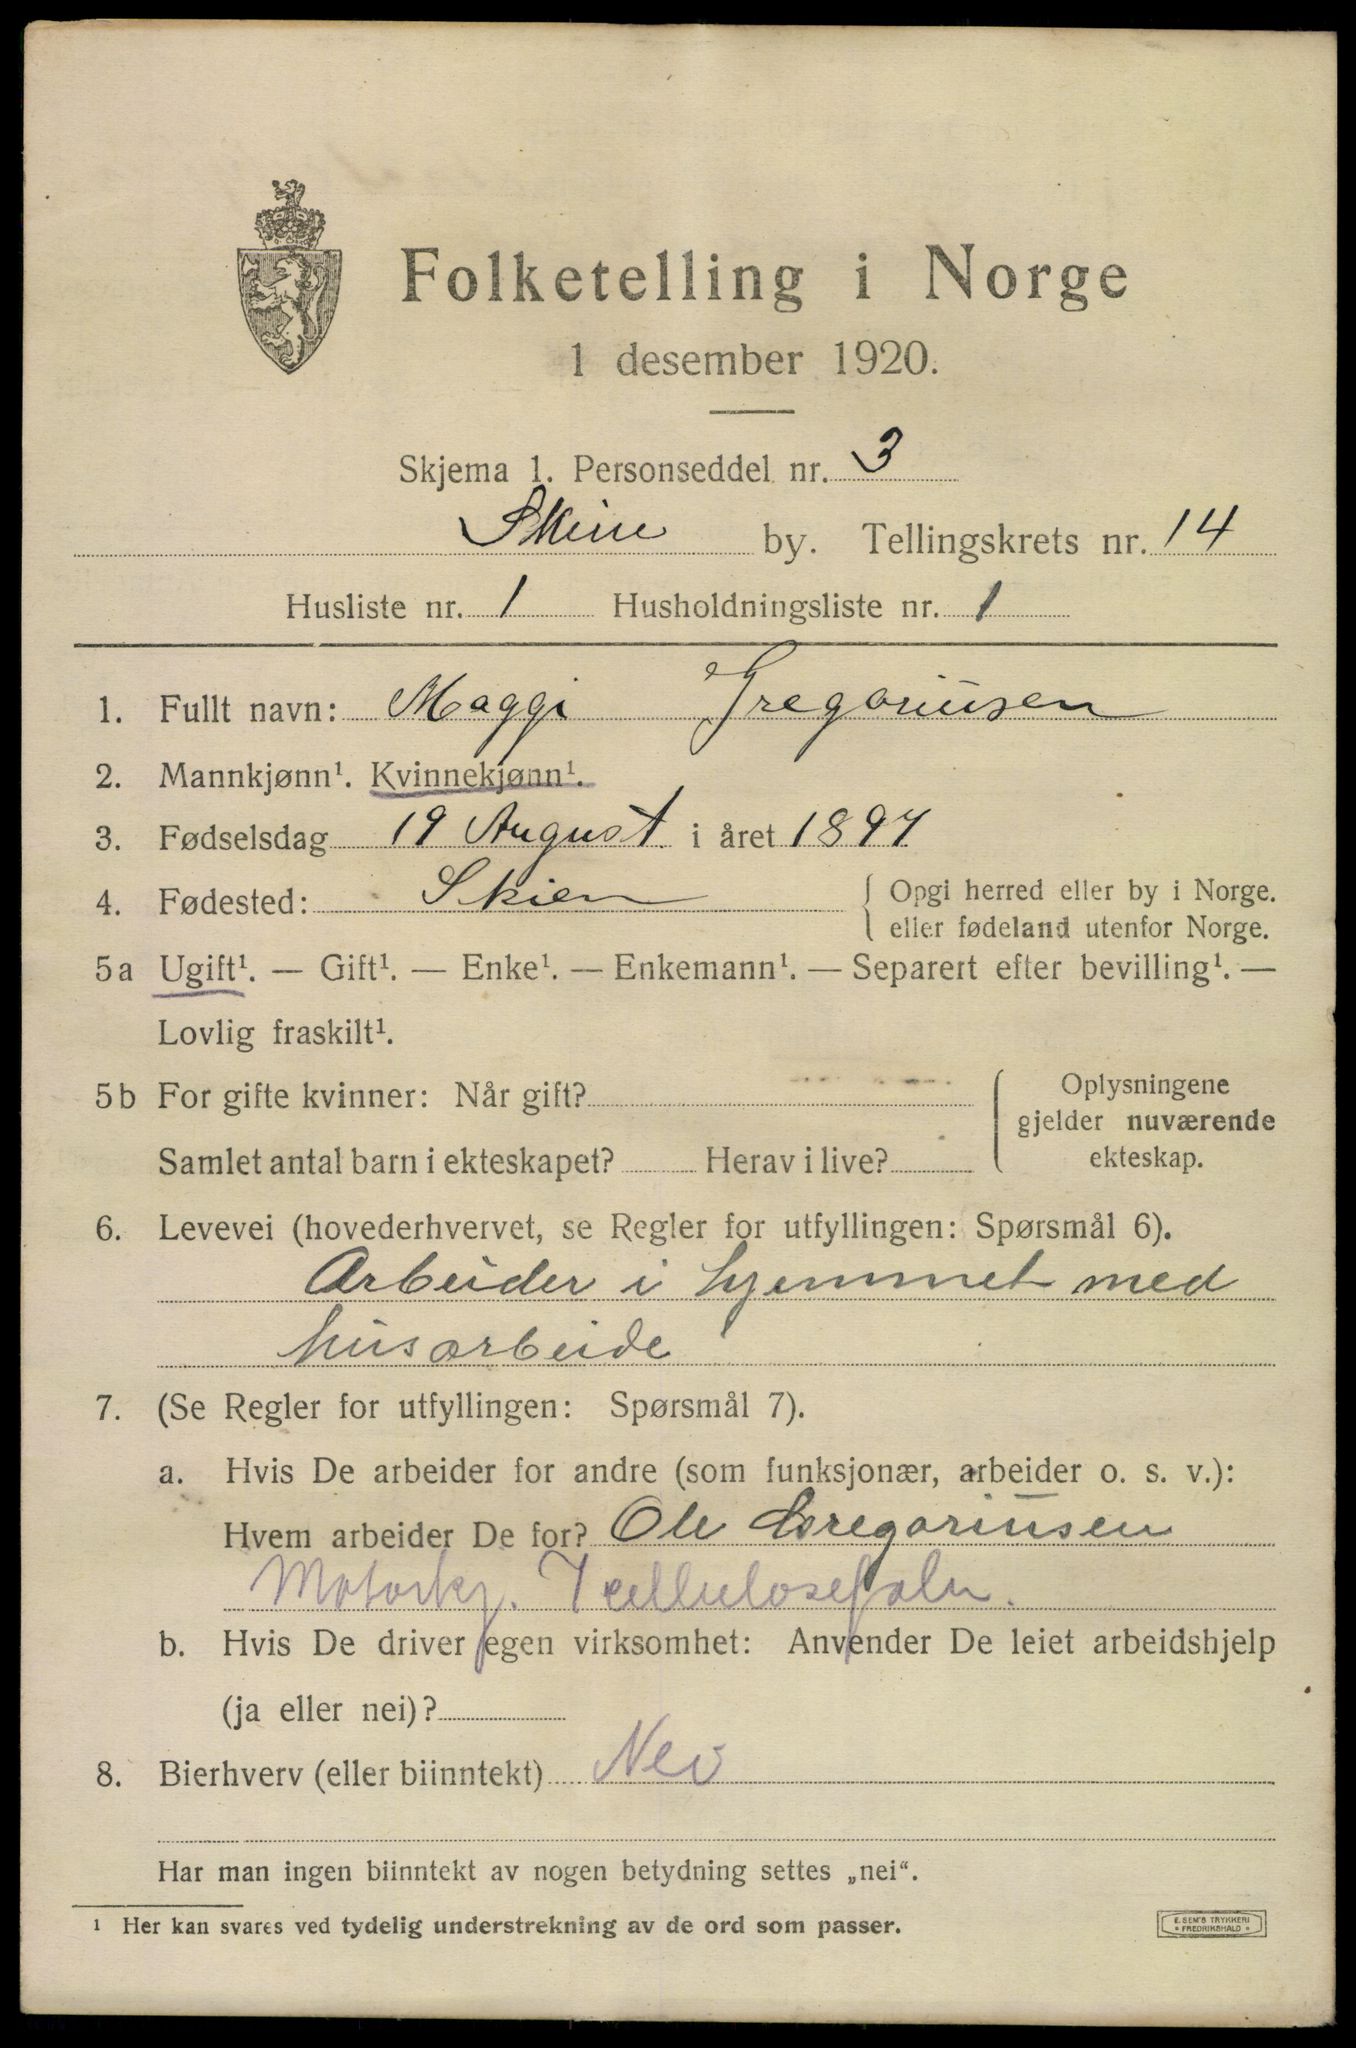 Folketelling i Norge
1 desember 1920.
Skjema 1. Personseddel nr. 3
Skien by. Tellingskrets nr. 14
Husliste nr. 1 Husholdningsliste nr. 1
1. Fullt navn: Maggi Gregoriusen
2. Mannkjønn¹. Kvinnekjønn¹.
3. Fødselsdag 19 August i året 1897
4. Fødested: Skien { Opgi herred eller by i Norge.
eller fødeland utenfor Norge.
5a Ugift¹. — Gift¹. — Enke¹. — Enkemann¹. — Separert efter bevilling¹. —
Lovlig fraskilt¹.
5b For gifte kvinner: Når gift?
Samlet antal barn i ekteskapet? Herav i live?
Oplysningene
gjelder nuværende
ekteskap.
6. Levevei (hovederhvervet, se Regler for utfyllingen: Spørsmål 6).
Arbeider i hjemmet med
husarbeide
7. (Se Regler for utfyllingen: Spørsmål 7).
a. Hvis De arbeider for andre (som funksjonær, arbeider o. s. v.):
Hvem arbeider De for? Ole Gregoriusen
Motorkj.
b. Hvis De driver egen virksomhet: Anvender De leiet arbeidshjelp
(ja eller nei)?
8. Bierhverv (eller biinntekt) Nei
Har man ingen biinntekt av nogen betydning settes „nei“.
¹ Her kan svares ved tydelig understrekning av de ord som passer.
E. SEM'S TRYKKERI
• FREDRIKSHALD •